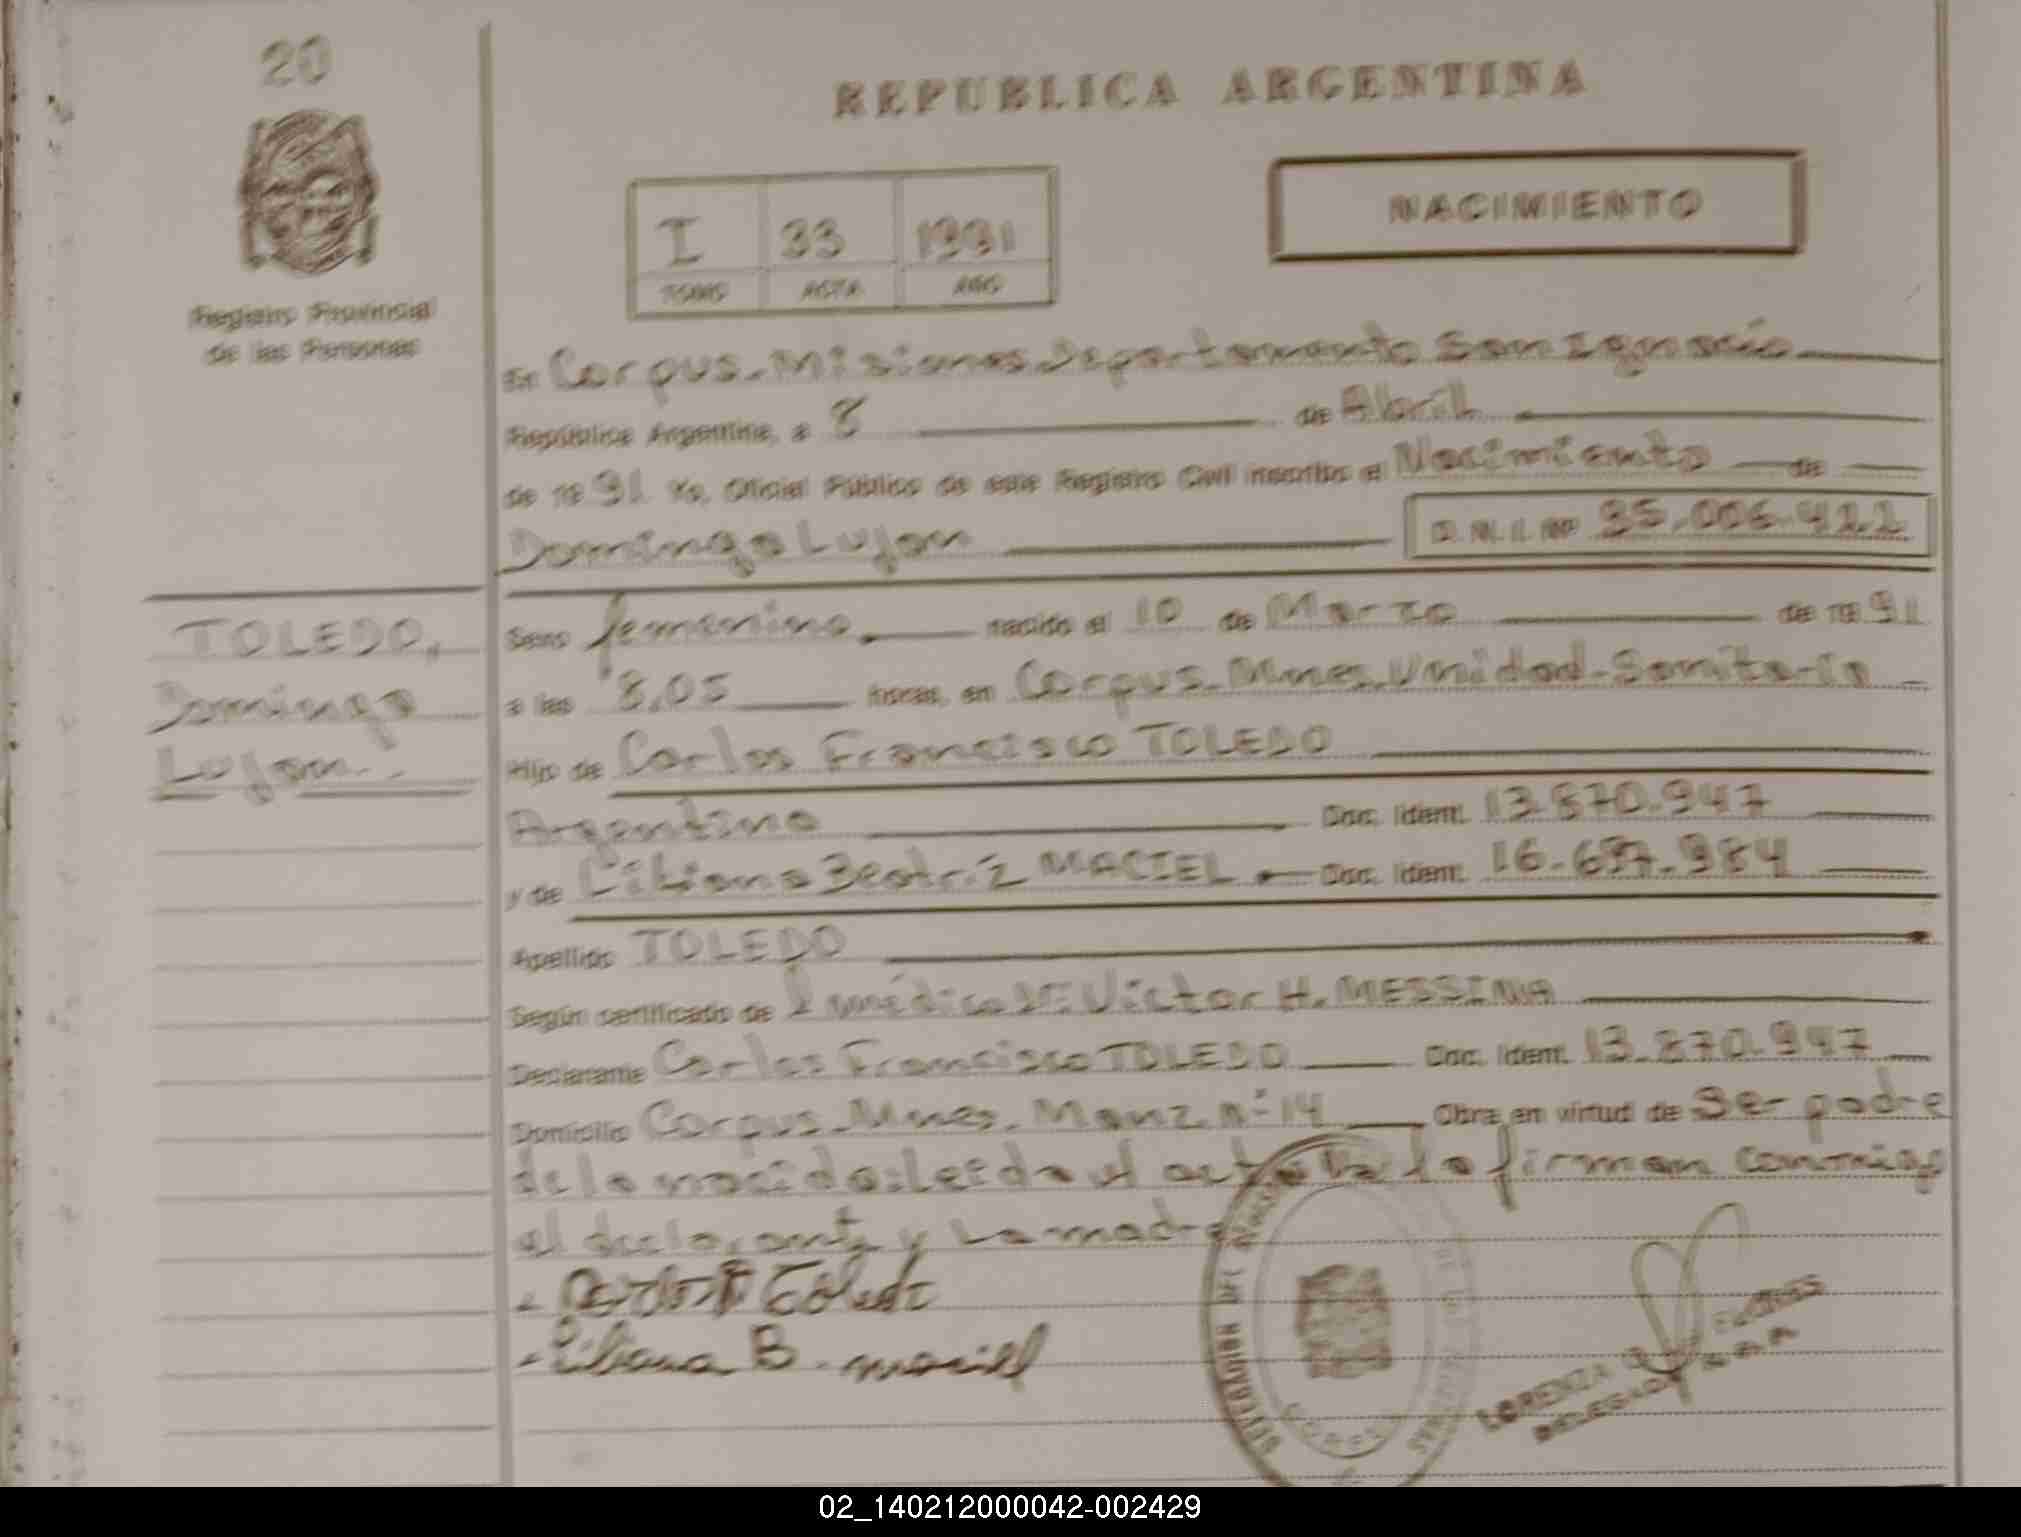 20
REPUBLICA ARGENTINA
NACIMIENTO
I 33 1991
TOMO ACTA AÑO
Registro Provincial
de las Personas
En Corpus-Misiones Departamento San Ignacio
República Argentina, a 8 de Abril
de 19 91 Yo, Oficial Público de este Registro Civil inscribo el Nacimiento de
Dominga Lujan D.N.I. Nº 35.006.422
TOLEDO,
Dominga
Lujan.-
Sexo femenino nacido el 10 de Marzo de 19 91
a las 8,05 horas, en Corpus-Mnes. Unidad-Sanitaria
Hijo de Carlos Francisco TOLEDO
Argentino Doc. Ident. 13.870.947
y de Liliana Beatríz MACIEL Doc. Ident. 16.697.984
Apellido TOLEDO
Según certificado de l médico Dr. Victor H. MESSINA
Declarante Carlos Francisco TOLEDO Doc. Ident. 13.870.947
Domicilio Corpus-Mnes. Manz. nº 14 Obra en virtud de Ser padre
de la nacida: Leida el acta la firman conmigo
el declarante y La madre
Toledo
- Liliana B. maciel
CORPUS
LORENZA FLORES
DELEGADA
02_140212000042-002429